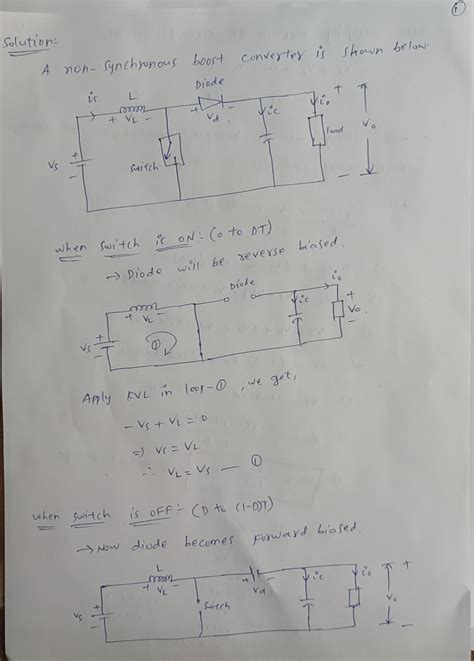 ①
Solution:-
A non-synchronous boost converter is shown below.
Diode
is L + Vd - ic io +
+ VL -
Vs + - Switch load Vo
-
when switch is ON:- (0 to DT)
→ Diode will be reverse biased.
L Diode io
+ VL - ic +
Vs + - ① Vo
-
Apply KVL in loop-①, we get,
- Vs + VL = 0
⇒ Vs = VL
∴ VL = Vs — ①
when switch is OFF:- (D to (1-D)T)
→ Now diode becomes Forward biased.
L + - ic io +
+ VL - Vd
Vs + - Switch Vo
-